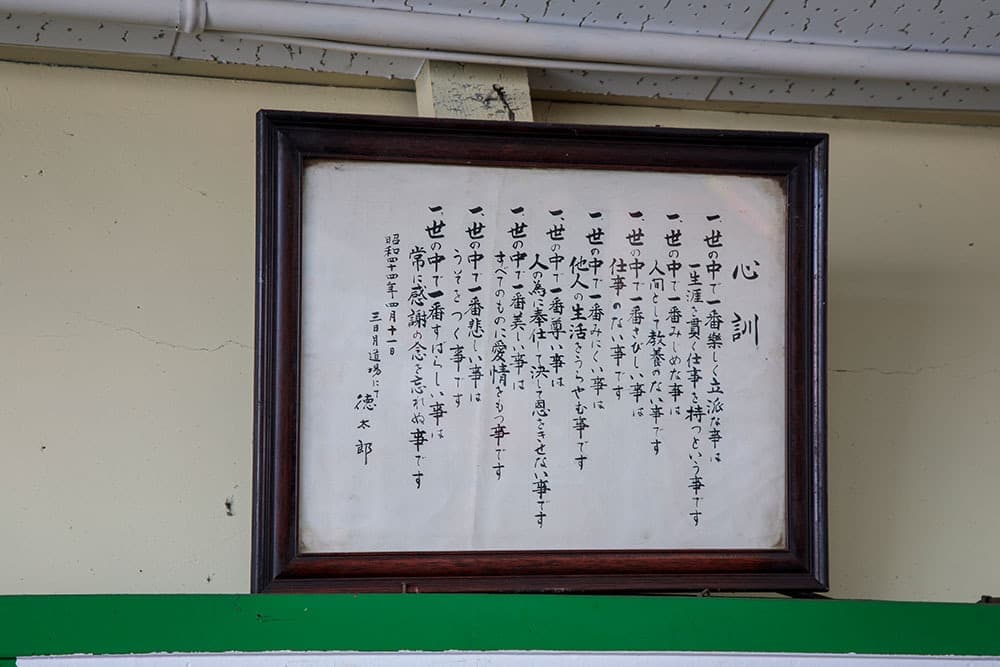 心訓
一、世の中で一番楽しく立派な事は
一生涯を貫く仕事を持つという事です
一、世の中で一番みじめな事は
人間として教養のない事です
一、世の中で一番さびしい事は
仕事のない事です
一、世の中で一番みにくい事は
他人の生活をうらやむ事です
一、世の中で一番尊い事は
人の為に奉仕して決して恩をきせない事です
一、世の中で一番美しい事は
すべてのものに愛情をもつ事です
一、世の中で一番悲しい事は
うそをつく事です
一、世の中で一番すばらしい事は
常に感謝の念を忘れぬ事です
昭和四十四年十四月十一日
三日月道場にて
徳太郎